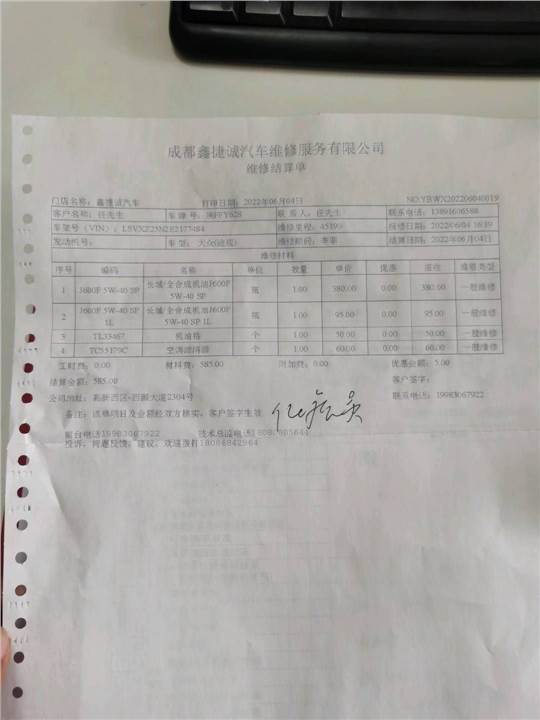 成都鑫捷诚汽车维修服务有限公司
维修结算单
门店名称: 鑫捷诚汽车 打印日期: 2022年06月04日 NO:YBWX202206040019
客户名称: 任先生 车牌号: 联系人: 任先生 联系电话:
车架号(VIN): 维修里程: 送修日期: 2022/06/04
发动机号: 车型: 大众 维修顾问: 结算日期: 2022年06月04日
维修材料
序号 编码 名称 单位 数量 单价 优惠 应收 维修类型
1 J600F 5W-40 SP 长城/全合成机油J600F 5W-40 SP 瓶 1.00 380.00 0.00 380.00 一般维修
2 J600F 5W-40 SP 1L 长城/全合成机油J600F 5W-40 SP 1L 瓶 1.00 95.00 0.00 95.00 一般维修
3 机油格 个 1.00 50.00 0.00 50.00 一般维修
4 空调滤清器 个 1.00 60.00 0.00 60.00 一般维修
工时费: 0.00 材料费: 585.00 附加费: 0.00 优惠金额: 5.00
结算金额: 585.00 客户签字:
公司地址: 高新西区-西源大道2304号 联系电话: 19983067922
备注: 送修项目及金额经双方核实,客户签字生效
前台电话19983067922 技术总监电话
投诉,问题反馈,建议,欢迎拨打18084842964